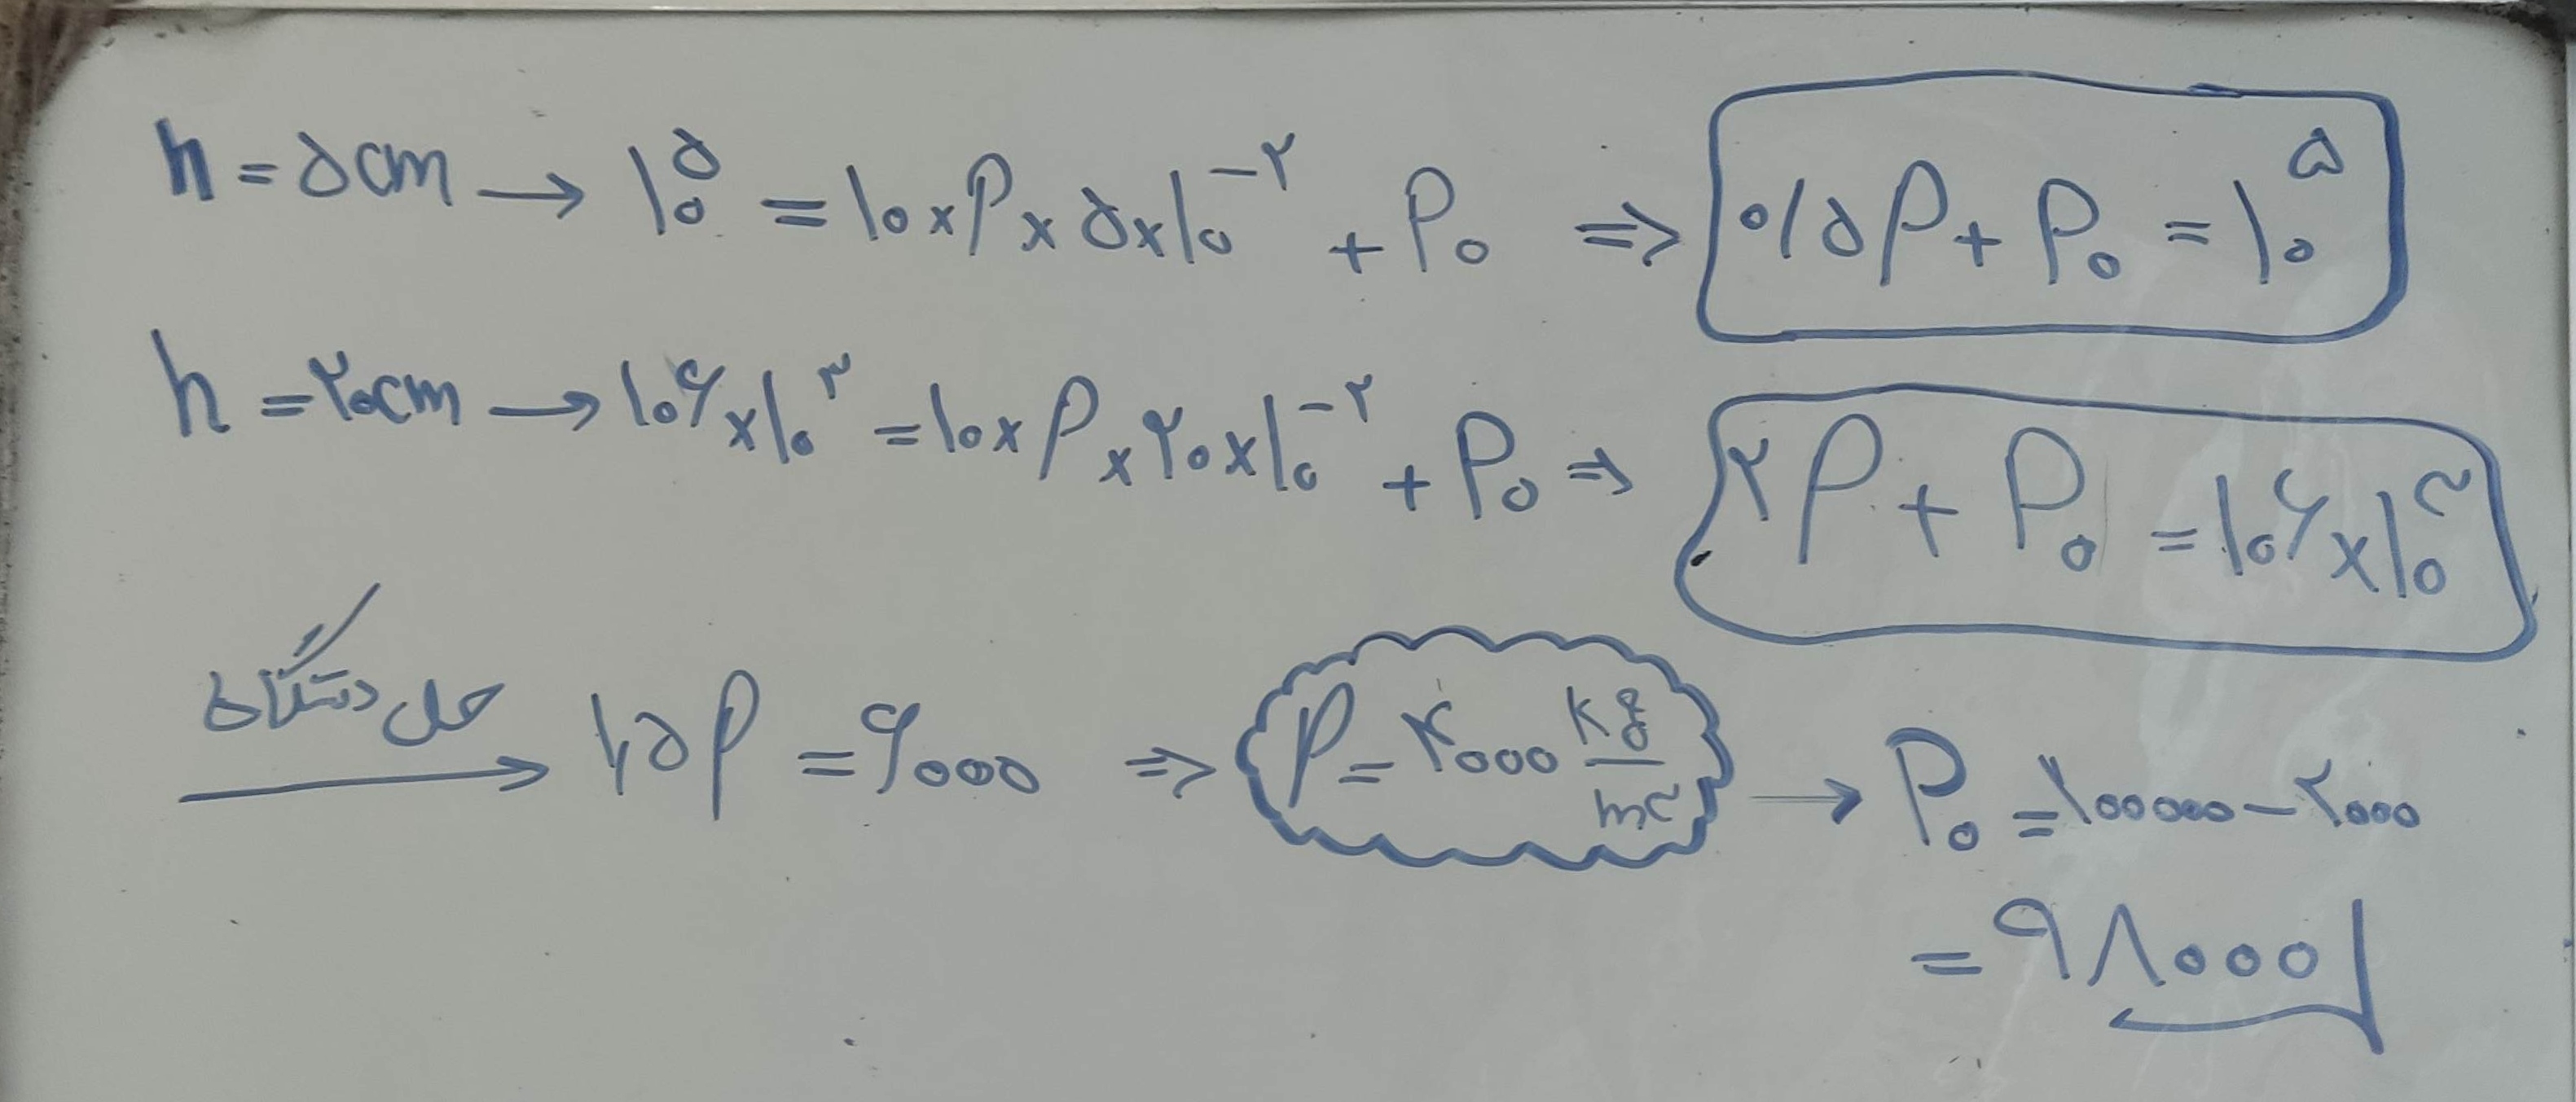 h = ۵cm → ۱۰^۵ = ۱۰ × ρ × ۵ × ۱۰^-۲ + P₀ ⇒ ۰/۵ρ + P₀ = ۱۰^۵
h = ۲۰cm → ۱۰۶ × ۱۰^۳ = ۱۰ × ρ × ۲۰ × ۱۰^-۲ + P₀ ⇒ ۲ρ + P₀ = ۱۰۶ × ۱۰^۳
حل دستگاه → ۱,۵ρ = ۶۰۰۰ ⇒ ρ = ۴۰۰۰ kg/m۳ → P₀ = ۱۰۰۰۰۰ - ۲۰۰۰
= ۹۸۰۰۰